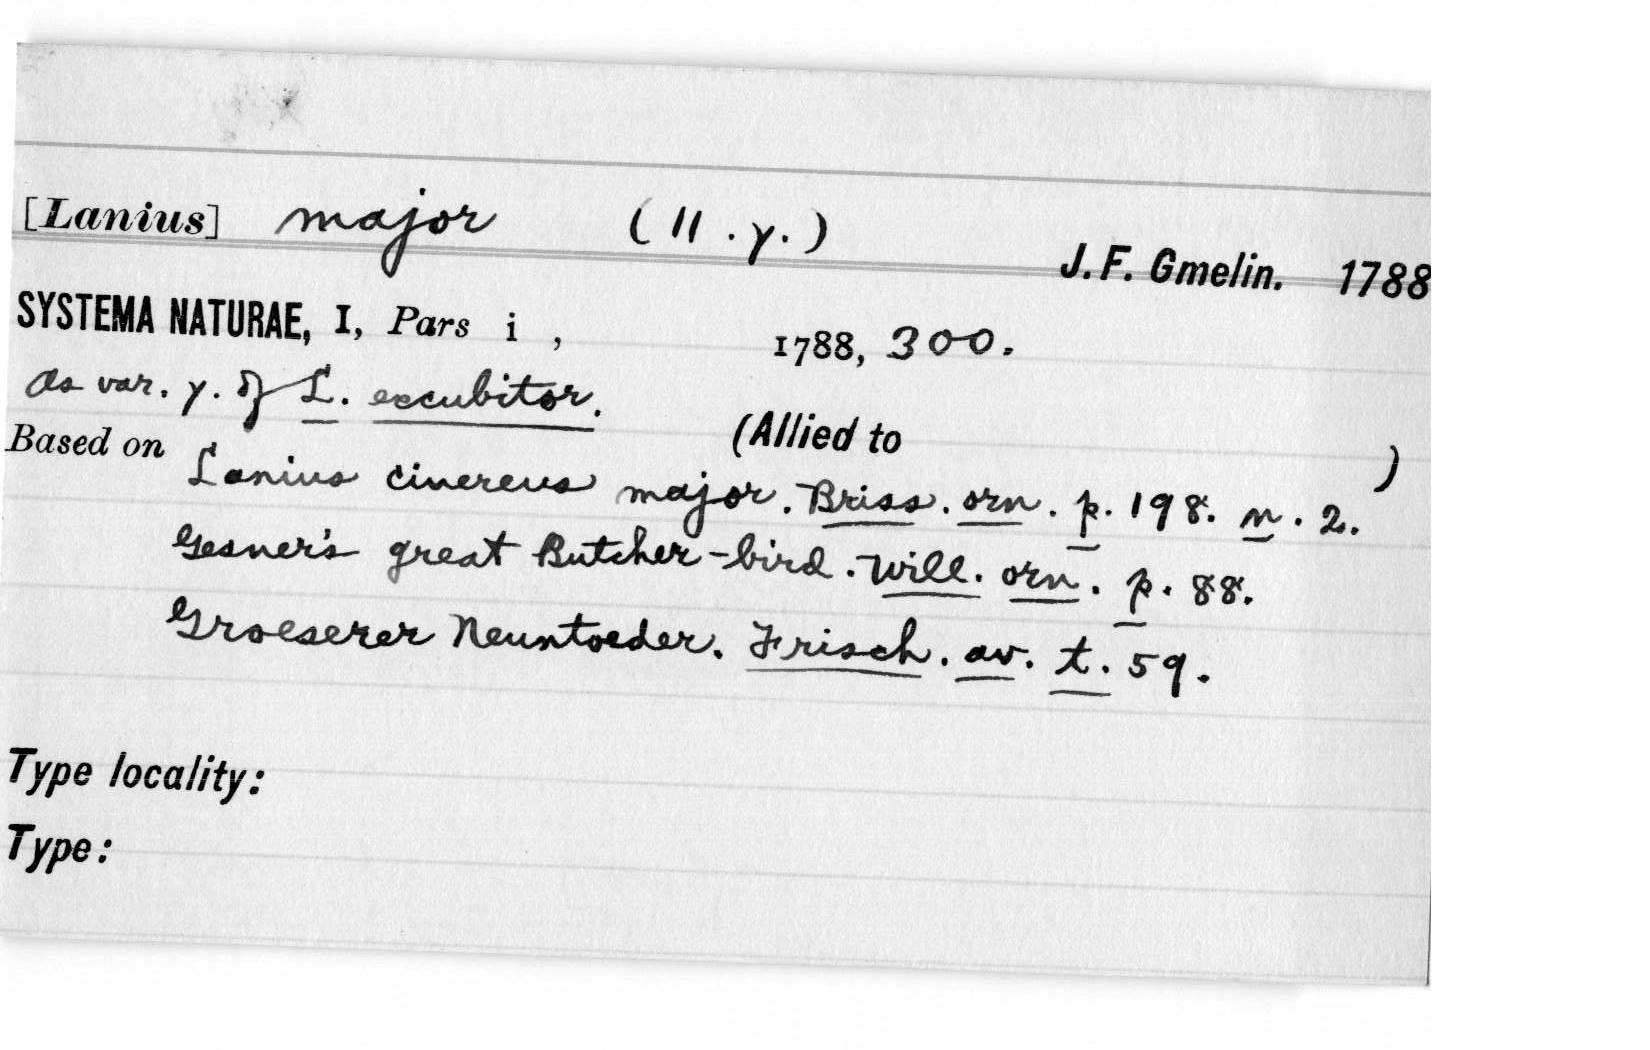 [Lanius] major (11.γ.)
J. F. Gmelin. 1788
SYSTEMA NATURAE, I, Pars i , 1788, 300.
As var. γ. of L. excubitor.
(Allied to )
Based on Lanius cinereus major. Briss. orn. p. 198. n. 2.
Gesner's great Butcher-bird. Will. orn. p. 88.
Groeserer Neuntoeder. Frisch. av. t. 59.
Type locality:
Type: